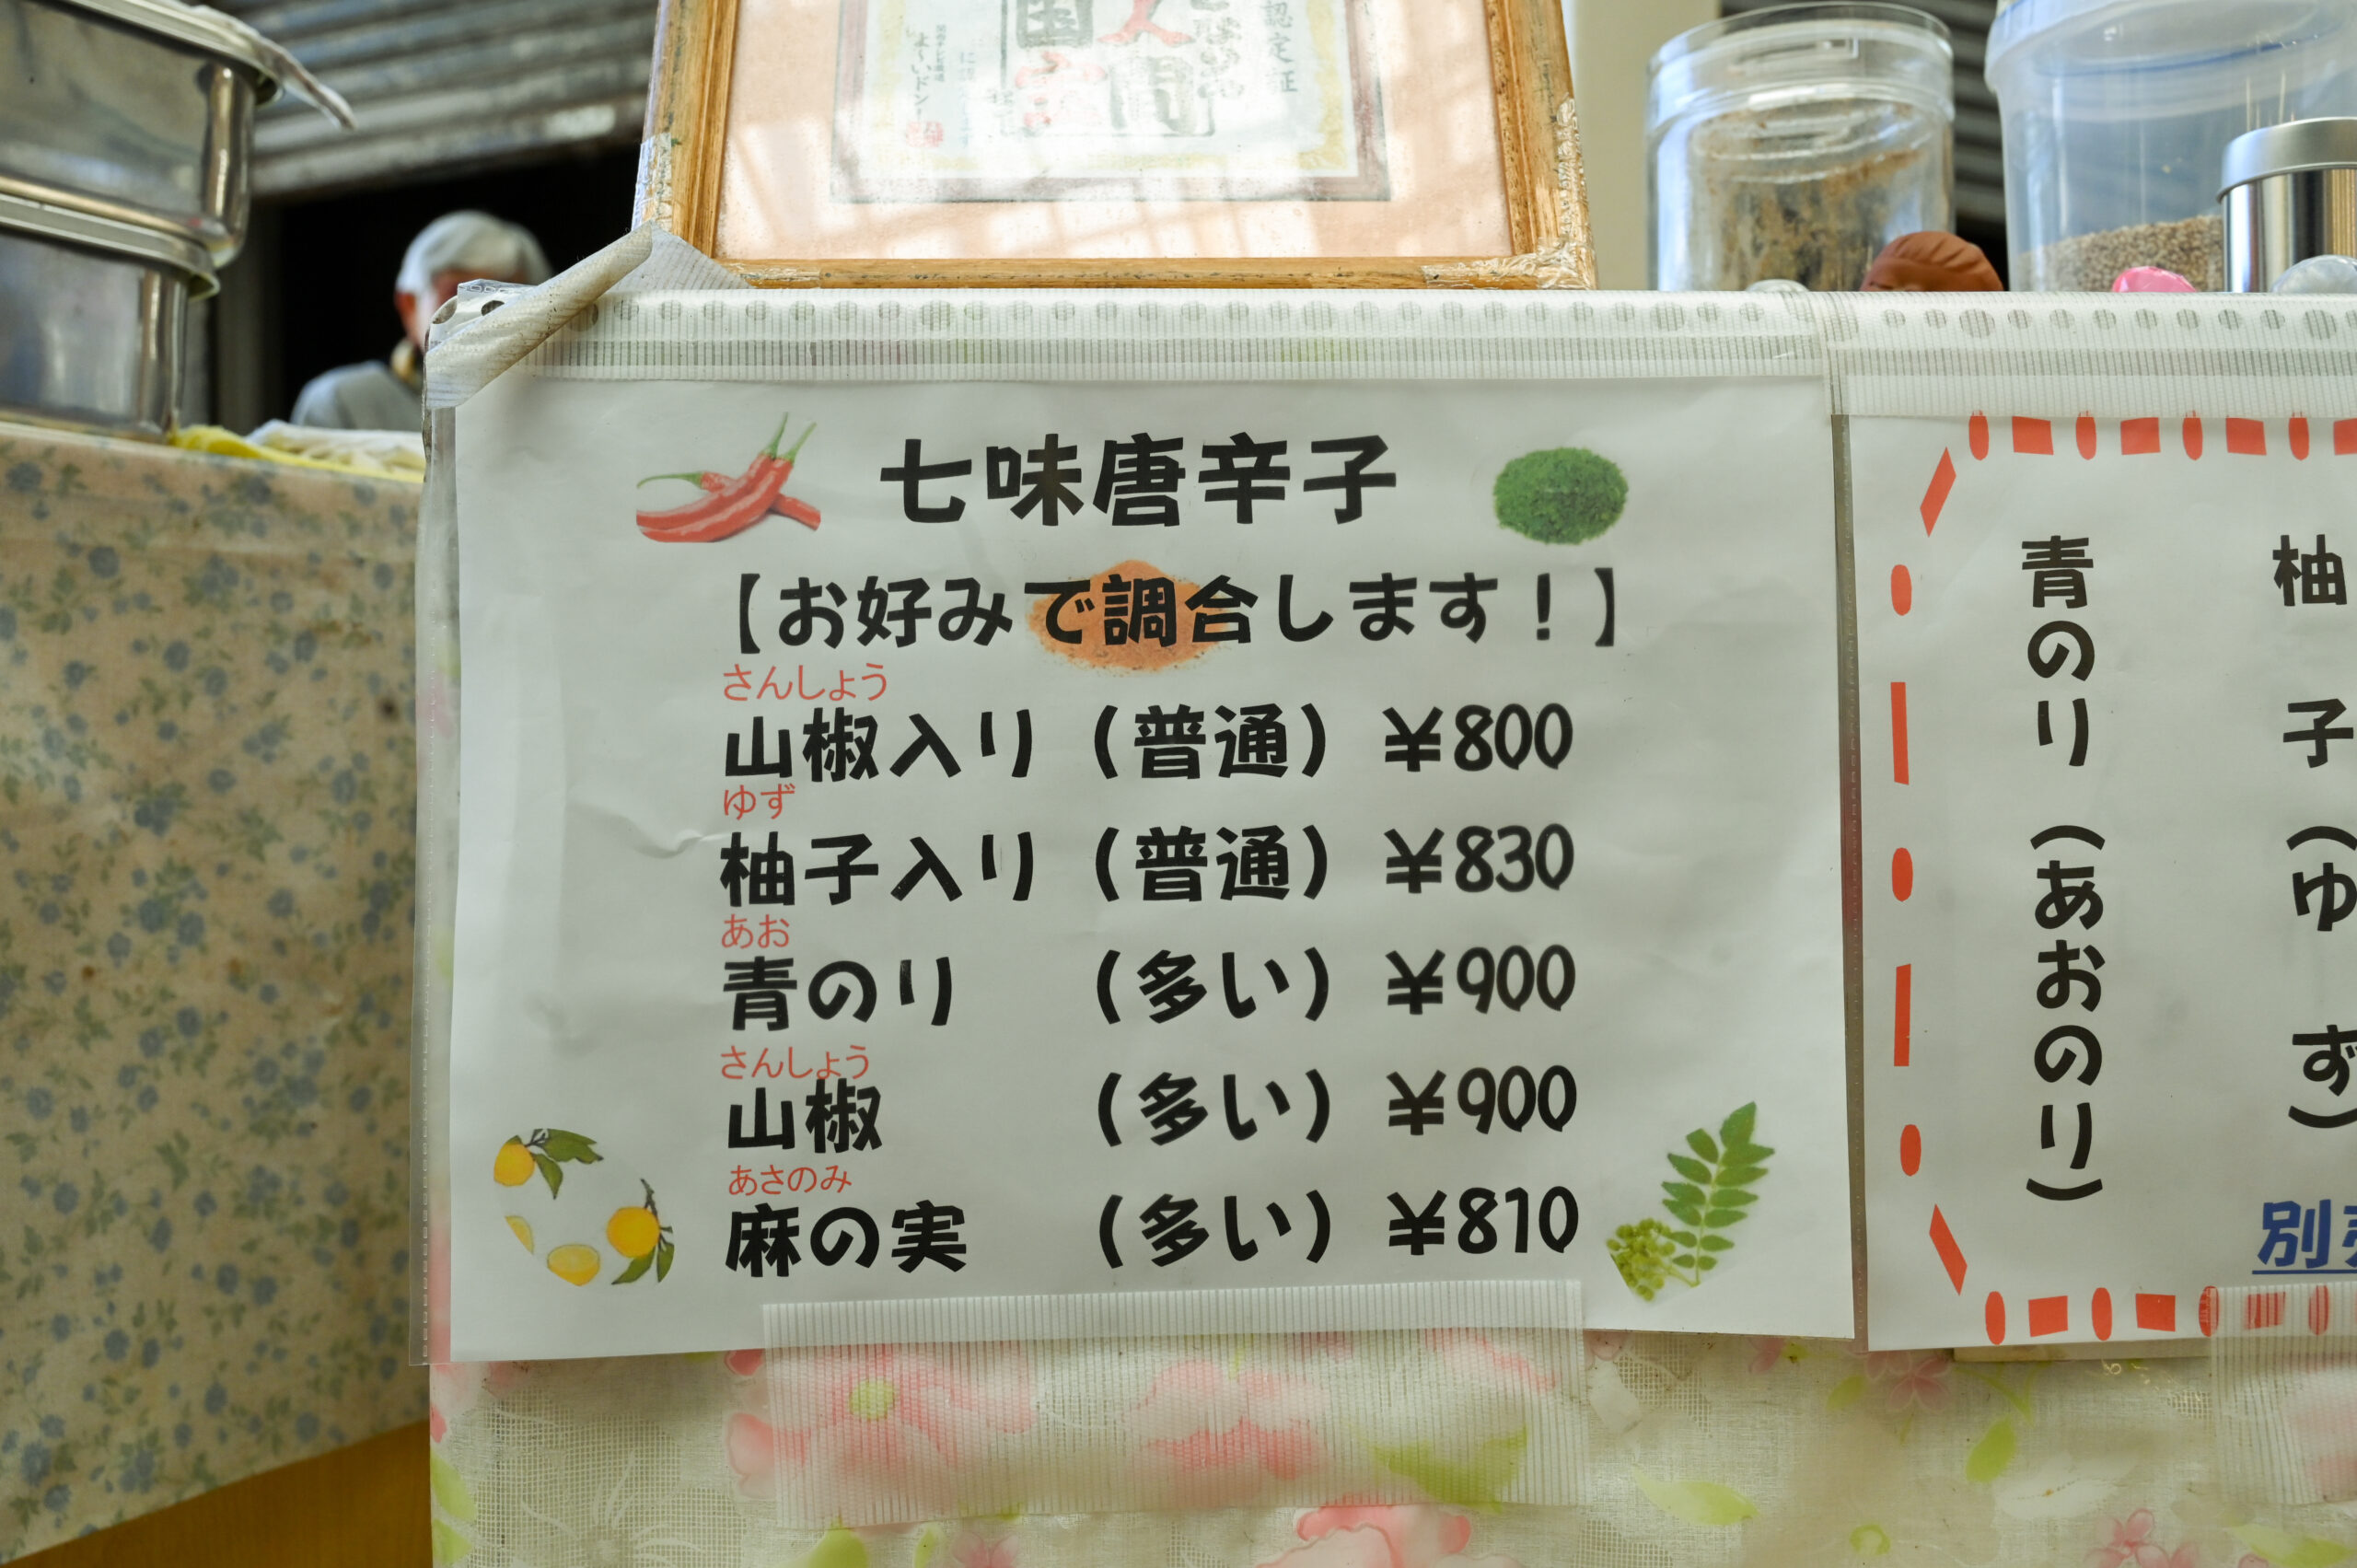 認定証
人間国宝
よ〜いドン!
七味唐辛子
【お好みで調合します!】
さんしょう
山椒入り(普通)¥800
ゆず
柚子入り(普通)¥830
あお
青のり (多い)¥900
さんしょう
山椒 (多い)¥900
あさのみ
麻の実 (多い)¥810
柚子(ゆず)
青のり(あおのり)
別売